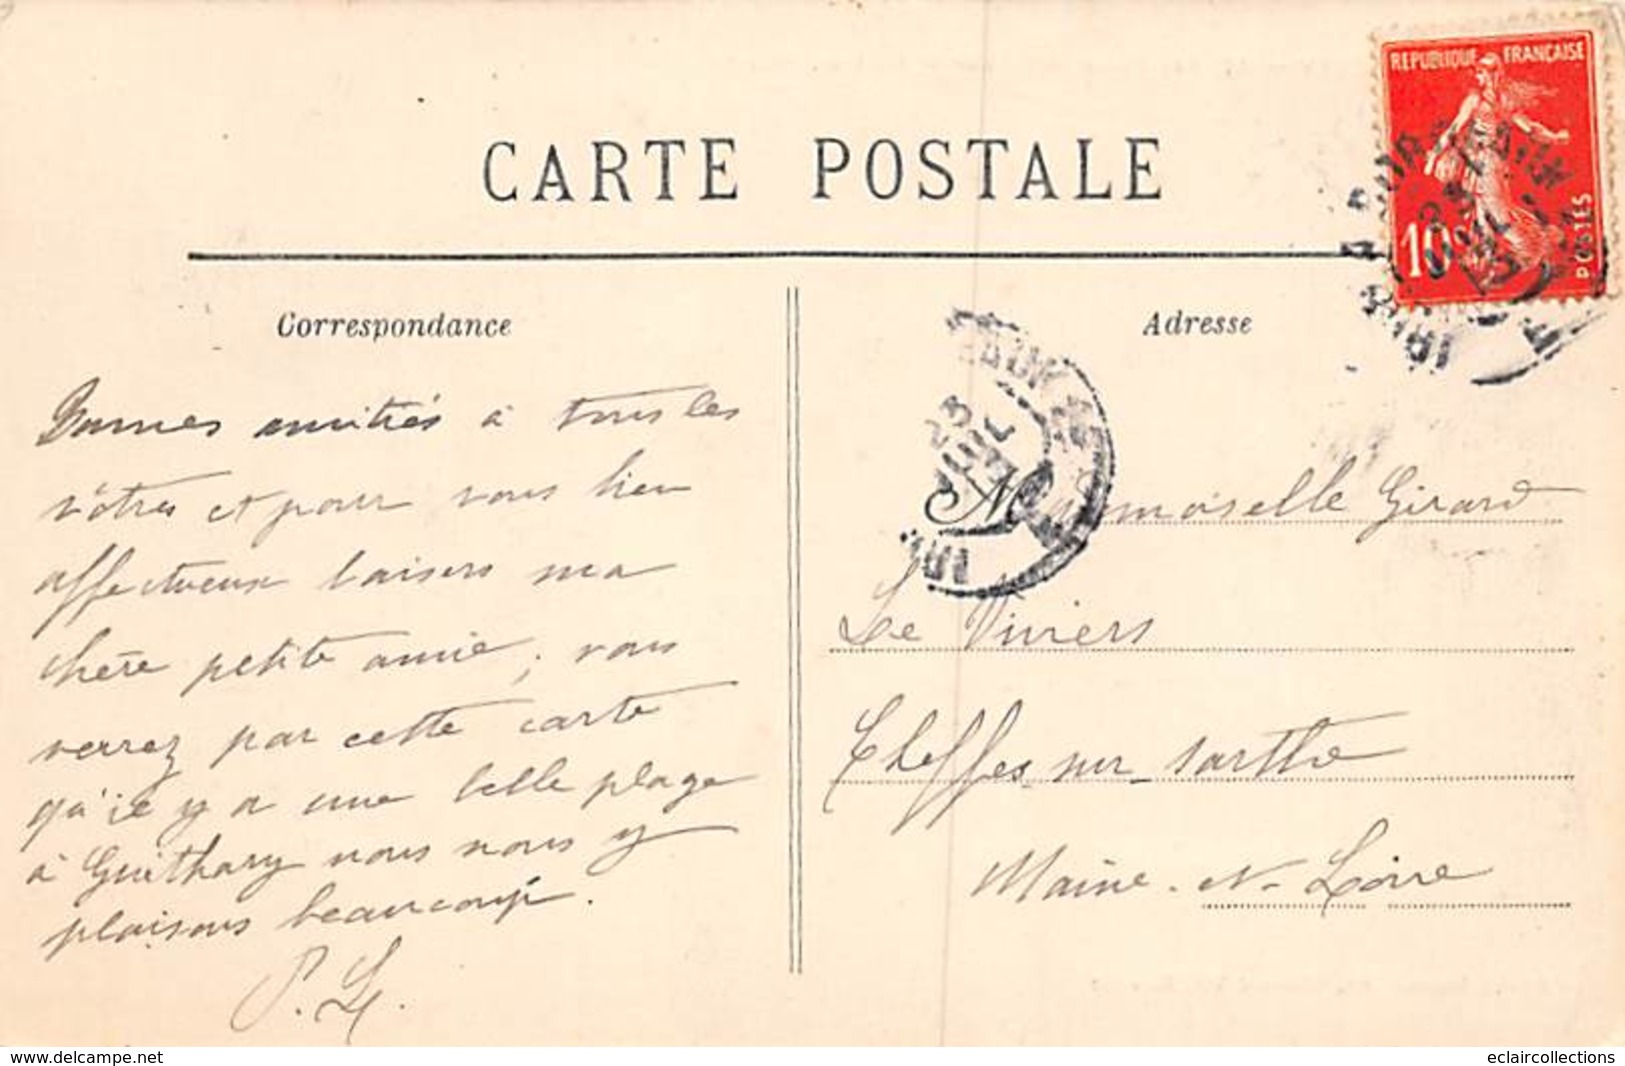 CARTE POSTALE
REPUBLIQUE FRANÇAISE
10
POSTES
Correspondance
Bonnes amitiés à tous les
vôtres et pour vous bien
affectueux baisers ma
chère petite amie, vous
verrez par cette carte
qu'ie y a une belle plage
à Guithary nous nous y
plaisons beaucoup.
Adresse
23
JUIL
Mademoiselle Girard
Le Viviers
Cheffes sur Sarthe
Maine-et-Loire
www.delcampe.net
eclaircollections